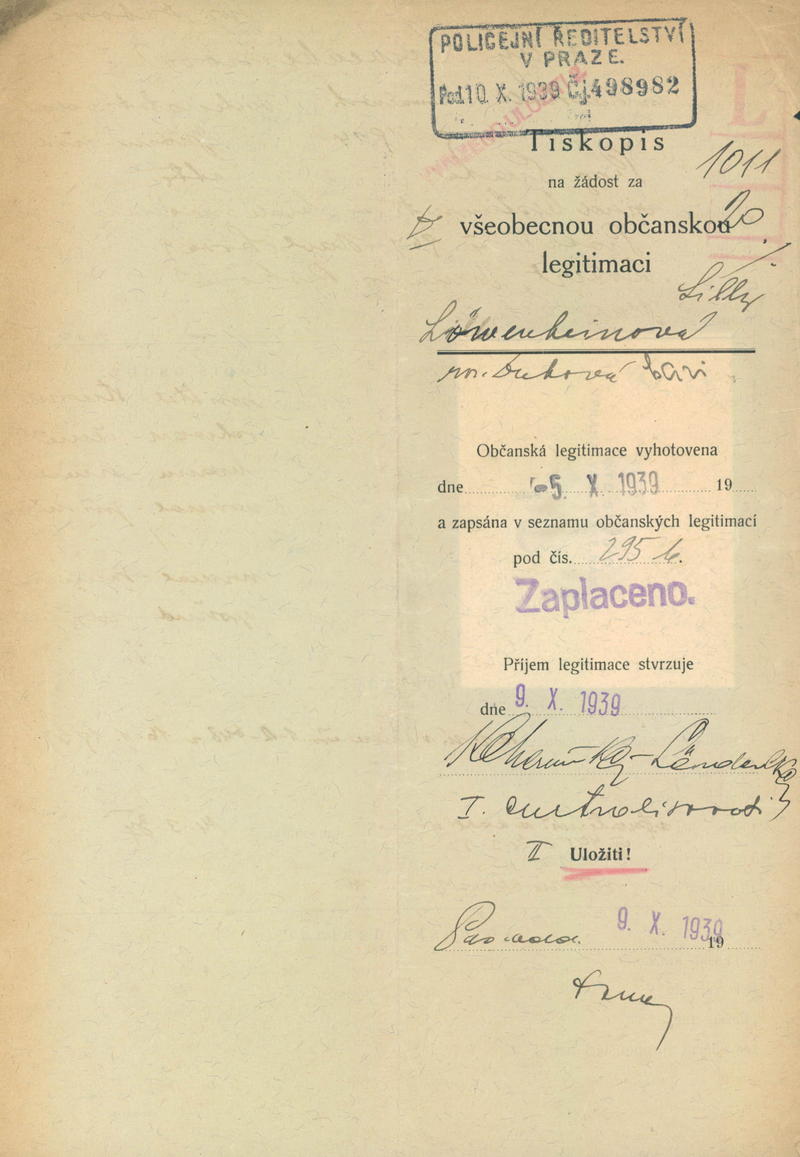 POLICEJNÍ ŘEDITELSTVÍ
V PRAZE.
Pod 10. X. 1939 Čj. 498982
Tiskopis
1011
na žádost za
20
všeobecnou občanskou
legitimaci
Lilly
Löwenheinová
roz.
Občanská legitimace vyhotovena
dne -5. X 1939 19
a zapsána v seznamu občanských legitimací
pod čís. 295
Zaplaceno.
Příjem legitimace stvrzuje
dne 9. X. 1939
I.
II Uložiti!
9. X. 1939
19